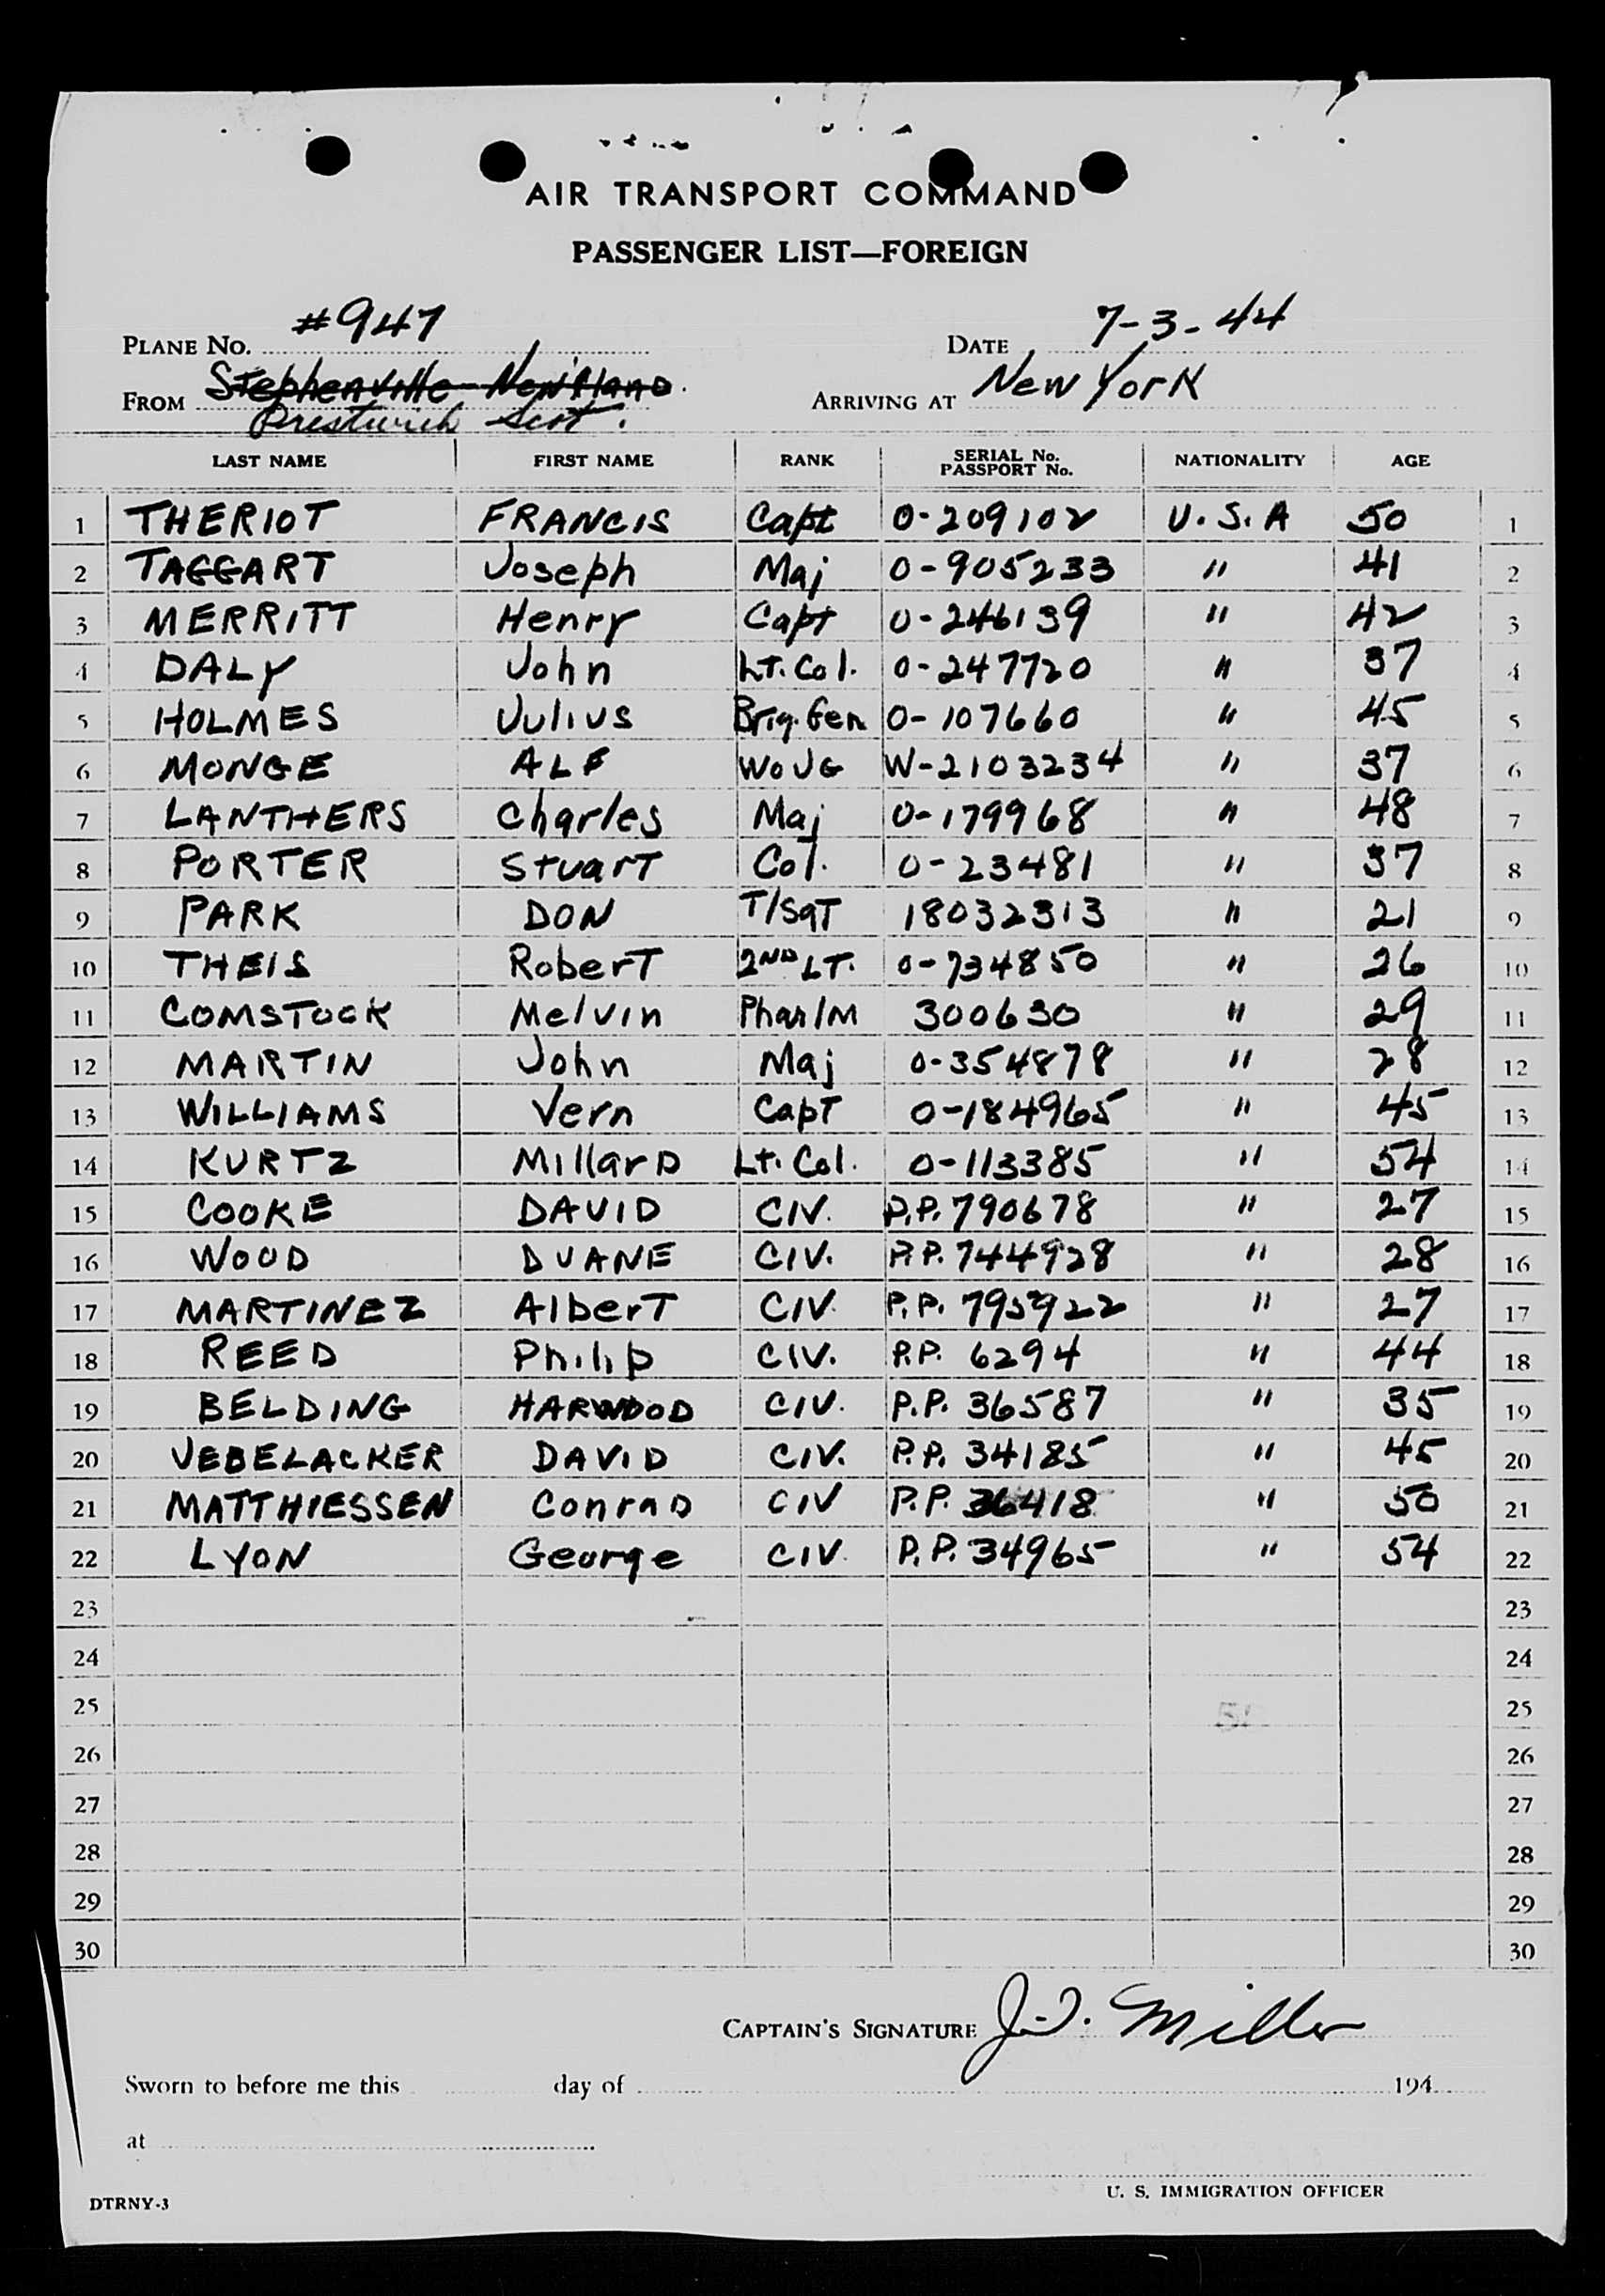 AIR TRANSPORT COMMAND
PASSENGER LIST—FOREIGN
PLANE No. #947 DATE 7-3-44
FROM Stephenville Newf'land. ARRIVING AT New York
Prestwich Scot.
LAST NAME FIRST NAME RANK SERIAL No. PASSPORT No. NATIONALITY AGE
1 THERIOT FRANCIS Capt 0-209102 U.S.A 50 1
2 TAGGART Joseph Maj 0-905233 " 41 2
3 MERRITT Henry Capt 0-246139 " 42 3
4 DALY John Lt. Col. 0-247720 " 37 4
5 HOLMES Julius Brig. Gen 0-107660 " 45 5
6 MONGE ALF WOJG W-2103234 " 37 6
7 LANTHERS Charles Maj 0-179968 " 48 7
8 PORTER Stuart Col. 0-23481 " 37 8
9 PARK DON T/Sgt 18032313 " 21 9
10 THEIS Robert 2ND LT. 0-734850 " 26 10
11 COMSTOCK Melvin Phar/M 300630 " 29 11
12 MARTIN John Maj 0-354878 " 28 12
13 WILLIAMS Vern Capt 0-184965 " 45 13
14 KURTZ Millard Lt. Col. 0-113385 " 54 14
15 COOKE DAVID CIV. P.P. 790678 " 27 15
16 WOOD DUANE CIV. P.P. 744928 " 28 16
17 MARTINEZ Albert CIV. P.P. 795922 " 27 17
18 REED Philip CIV. P.P. 6294 " 44 18
19 BELDING HARWOOD CIV. P.P. 36587 " 35 19
20 UEBELACKER DAVID CIV. P.P. 34185 " 45 20
21 MATTHIESSEN Conrad CIV P.P. 36418 " 50 21
22 LYON George CIV. P.P. 34965 " 54 22
23 23
24 24
25 25
26 26
27 27
28 28
29 29
30 30
CAPTAIN'S SIGNATURE J.D. Miller
Sworn to before me this day of 194
at
U. S. IMMIGRATION OFFICER
DTRNY-3